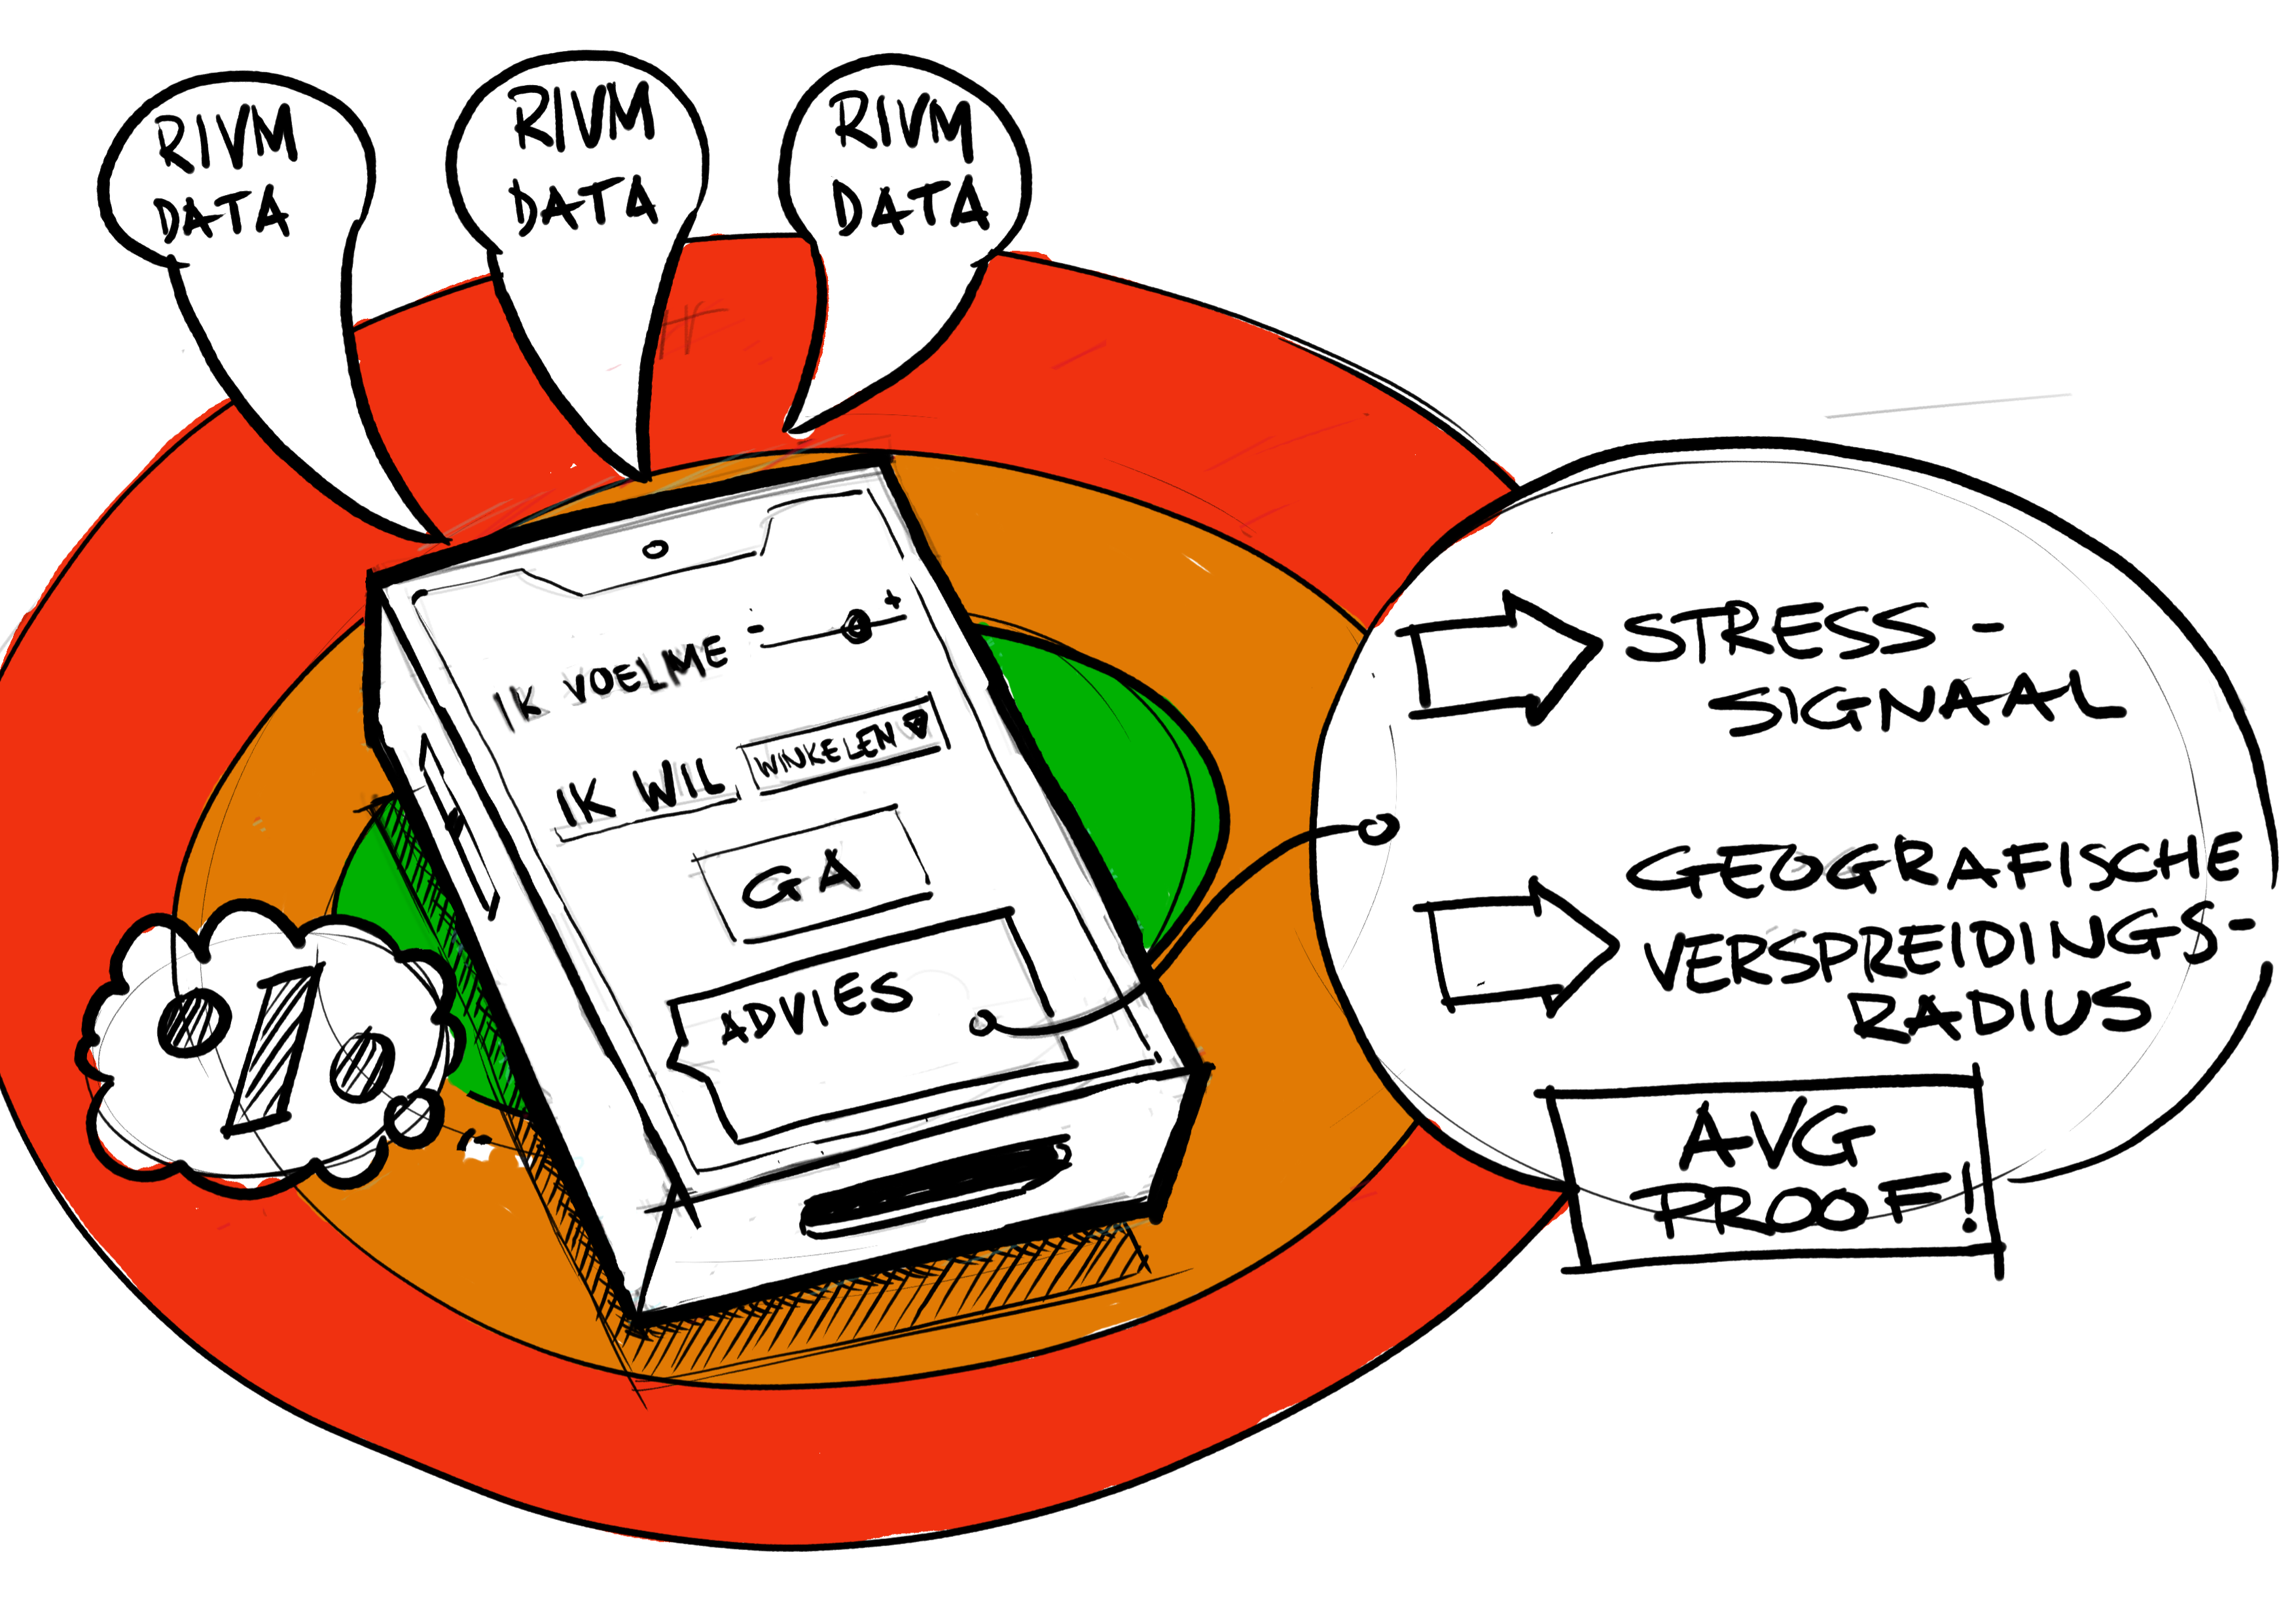 RIVM
DATA
RIVM
DATA
RIVM
DATA
IK VOEL ME - +
IK WIL WINKELEN
GA
ADVIES
STRESS-
SIGNAAL
GEOGRAFISCHE
VERSPREIDINGS-
RADIUS
AVG
PROOF!
%